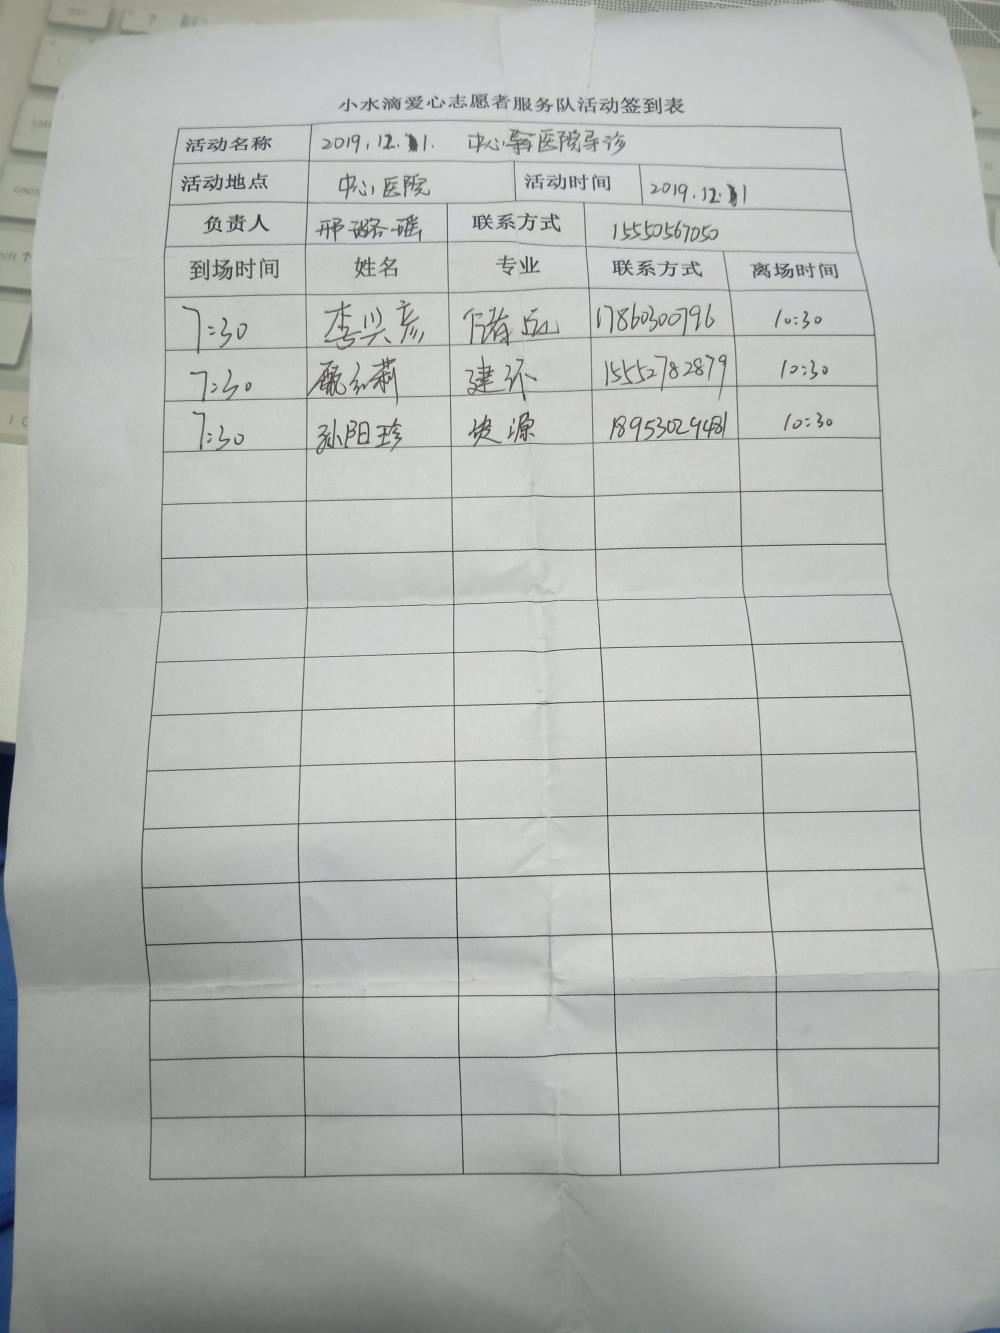 小水滴爱心志愿者服务队活动签到表
活动名称 2019.12.11. 中心医院导诊
活动地点 中心医院 活动时间 2019.12.11
负责人 邢璐瑶 联系方式 15550567050
到场时间 姓名 专业 联系方式 离场时间
7:30 李兴彦 储运 17860300796 10:30
7:30 甄红莉 建环 15552782879 10:30
7:30 孙阳珍 资源 18953029481 10:30